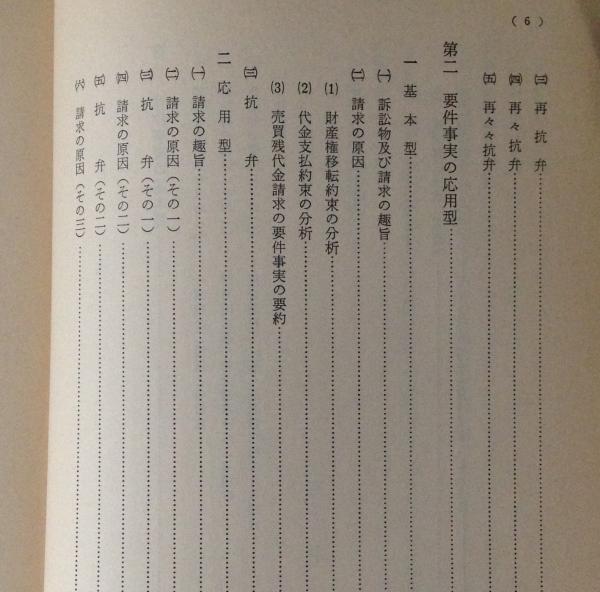 (6)
㈢ 再抗弁
㈣ 再々抗弁
㈤ 再々々抗弁
第二 要件事実の応用型
一 基本型
㈠ 訴訟物及び請求の趣旨
㈡ 請求の原因
(1) 財産権移転約束の分析
(2) 代金支払約束の分析
(3) 売買残代金請求の要件事実の要約
㈢ 抗弁
二 応用型
㈠ 請求の趣旨
㈡ 請求の原因(その一)
㈢ 抗弁(その一)
㈣ 請求の原因(その二)
㈤ 抗弁(その二)
㈥ 請求の原因(その三)